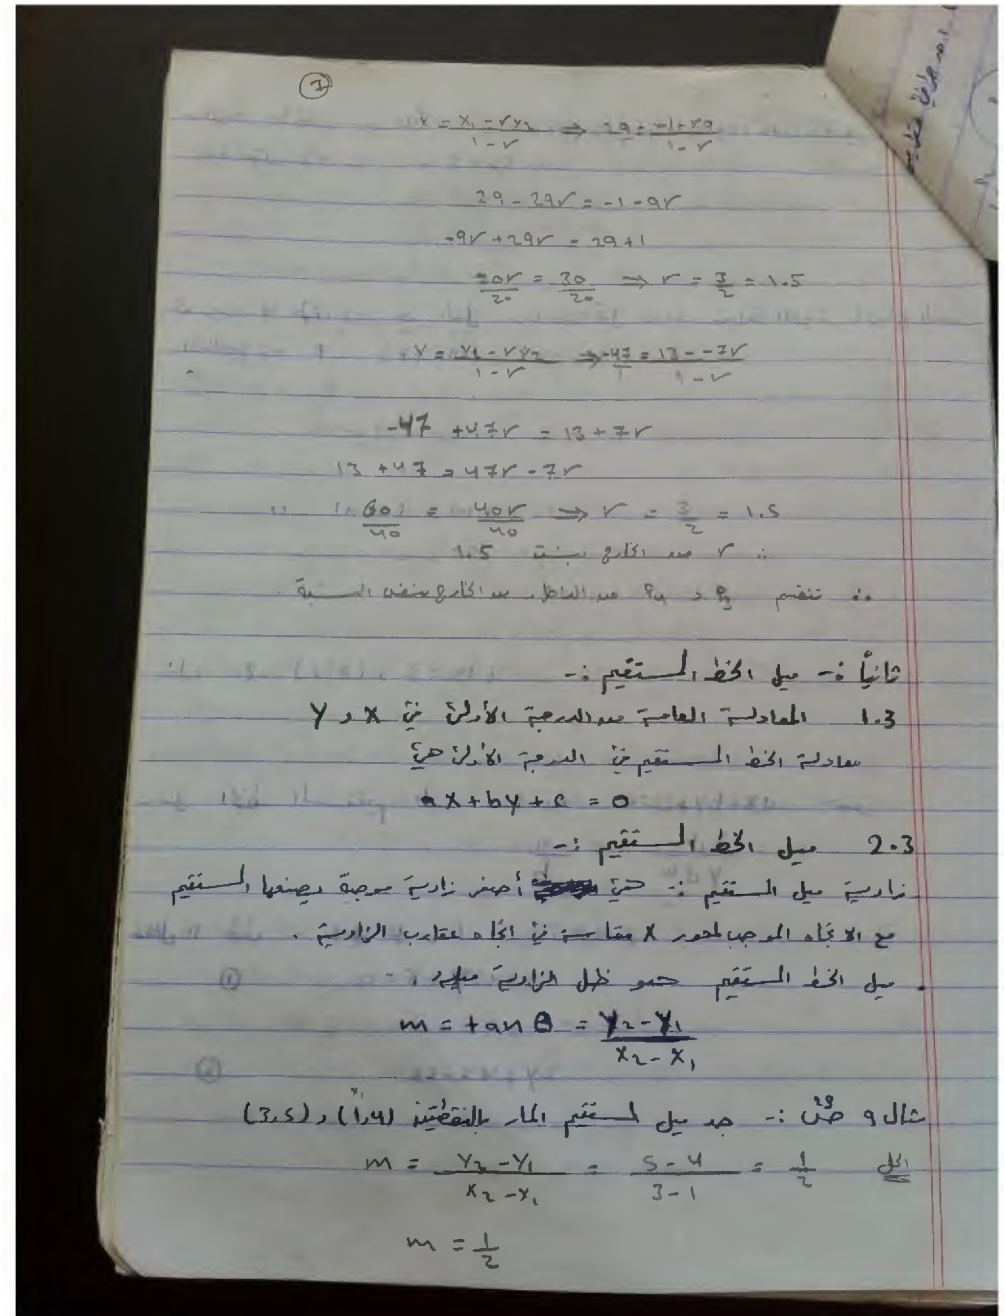 7
x = x₁ - rx₂ / 1 - r ⇒ 29 = -1 - r9 / 1 - r
29 - 29r = -1 - 9r
-9r + 29r = 29 + 1
20r / 20 = 30 / 20 ⇒ r = 3/2 = 1.5
y = y₁ - ry₂ / 1 - r ⇒ -47 / 1 = 13 - -7r / 1 - r
-47 + 47r = 13 + 7r
13 + 47 = 47r - 7r
60 / 40 = 40r / 40 ⇒ r = 3/2 = 1.5
∴ r من الخارج بنسبة 1.5
∴ تنقسم من الداخل من الخارج بنفس النسبة
ثانياً :- ميل الخط المستقيم :-
1.3 المعادلة العامة من الدرجة الأولى في x و y
معادلة الخط المستقيم في الدرجة الأولى هي
ax + by + c = 0
2.3 ميل الخط المستقيم :-
زاوية ميل المستقيم :- هي أصغر زاوية موجبة يصنعها المستقيم
مع الاتجاه الموجب لمحور x مقاسة في اتجاه عقارب الزاوية .
. ميل الخط المستقيم هو ظل الزاوية
m = tan θ = y₂ - y₁ / x₂ - x₁
مثال 9 ص 23 :- جد ميل المستقيم المار بالنقطتين (1,4) و (3,5)
الحل m = y₂ - y₁ / x₂ - x₁ = 5 - 4 / 3 - 1 = 1/2
m = 1/2